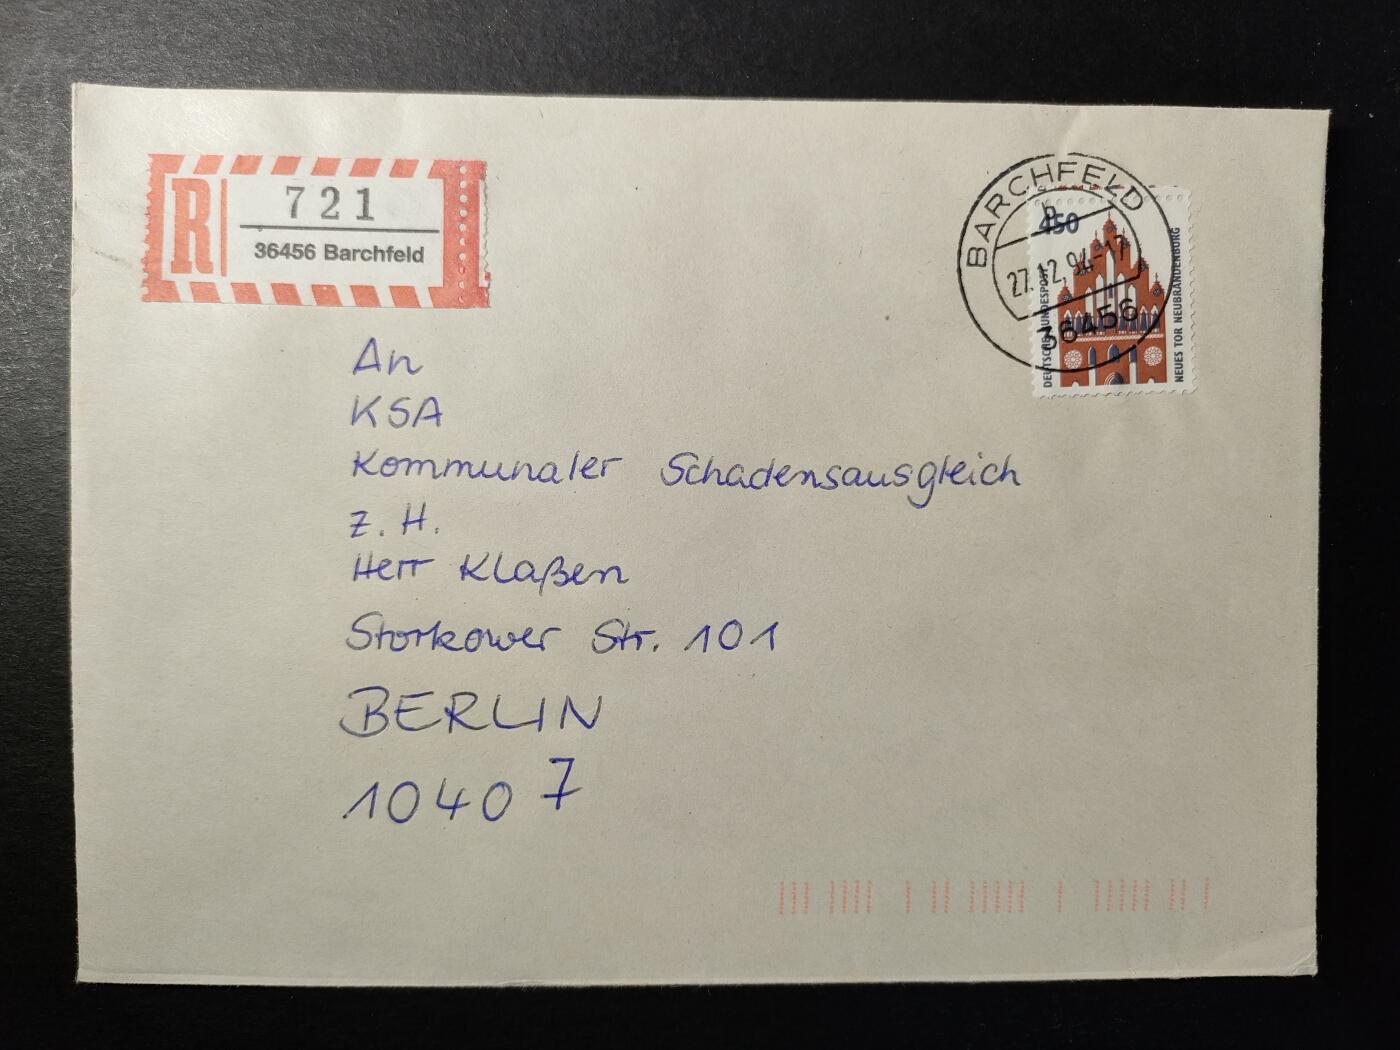 R
721
36456 Barchfeld
BARCHFELD
b
27.12.94-17
36456
450
DEUTSCHE BUNDESPOST
NEUES TOR NEUBRANDENBURG
An
KSA
Kommunaler Schadensausgleich
z. H.
Herr Klaßen
Storkower Str. 101
BERLIN
10407